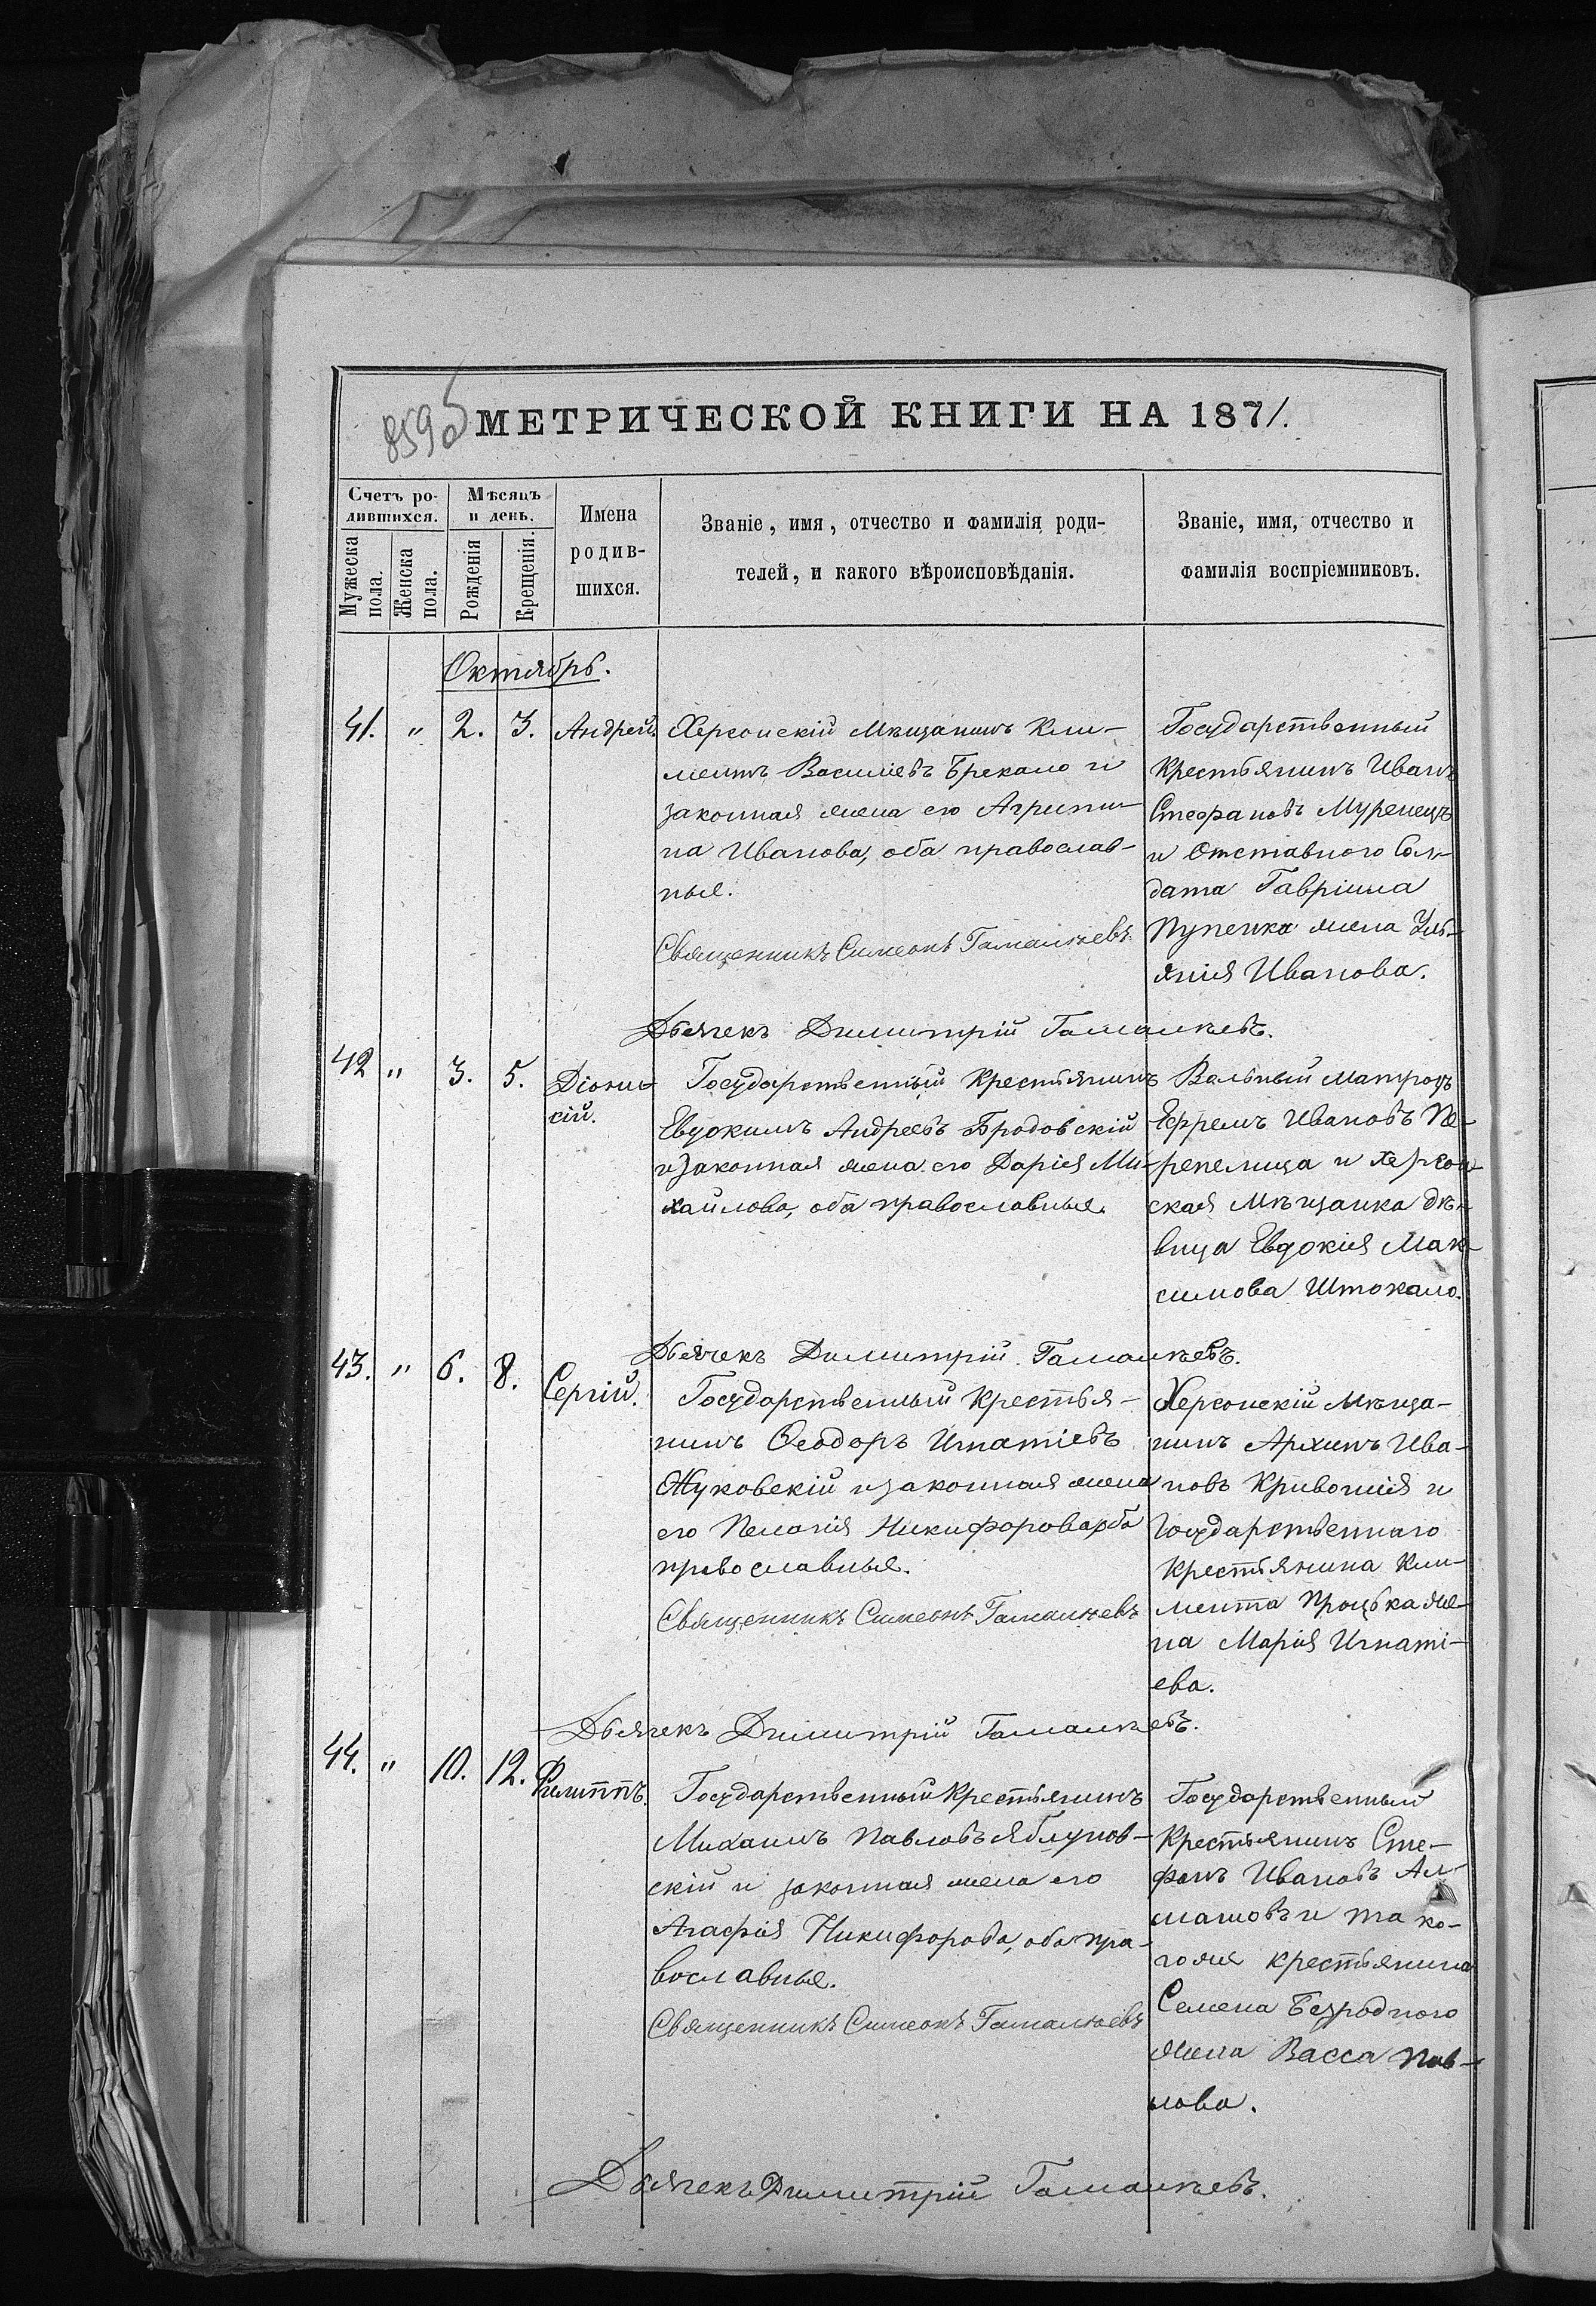 859 об
МЕТРИЧЕСКОЙ КНИГИ НА 1871.
Счетъ ро-
дившихся.
Мужеска пола.
Женска пола.
Мѣсяцъ
и день.
Рожденія
Крещенія.
Имена
родив-
шихся.
Званіе, имя, отчество и фамилія роди-
телей, и какого вѣроисповѣданія.
Званіе, имя, отчество и
фамилія воспріемниковъ.
Октябрь.
41. " 2. 3. Андрей.
Херсонскій Мѣщанинъ Кли-
ментъ Василіевъ Брекало и
законная жена его Агрипи-
на Иванова, оба православ-
ныя.
Священникъ Симеонъ Гамалѣевъ
Государственный
Крестьянинъ Иванъ
Стефановъ Муренецъ
и Отставного Сол-
дата Гавріила
Пупенка жена Уль-
янія Иванова.
Дьячекъ Димитрій Гамалѣевъ.
42 " 3. 5. Діони-
сій.
Государственный Крестьянинъ
Евдокимъ Андреевъ Бродовскій
и законная жена его Дарія Ми-
хайлова, оба православныя.
Вольный Матрозъ
Ефремъ Ивановъ Пе-
репелица и Херсон-
ская Мѣщанка дѣ-
вица Евдокія Мак-
симова Штокало.
Дьячекъ Димитрій Гамалѣевъ.
43. " 6. 8. Сергій.
Государственный Крестья-
нинъ Ѳеодоръ Игнатіевъ
Жуковскій и законная жена
его Пелагія Никифорова, оба
православныя.
Священникъ Симеонъ Гамалѣевъ
Херсонскій Мѣща-
нинъ Архипъ Ива-
новъ Кривошія и
Государственнаго
Крестьянина Кли-
мента Процька же-
на Марія Игнаті-
ева.
Дьячекъ Димитрій Гамалѣевъ.
44. " 10. 12. Филиппъ.
Государственный Крестьянинъ
Михаилъ Павловъ Яблунов-
скій и законная жена его
Агафія Никифорова, оба пра-
вославныя.
Священникъ Симеонъ Гамалѣевъ
Государственный
Крестьянинъ Сте-
фанъ Ивановъ Ал-
машовъ и тако-
гожъ крестьянина
Семена Безродного
жена Васса Пав-
лова.
Дьячекъ Димитрій Гамалѣевъ.